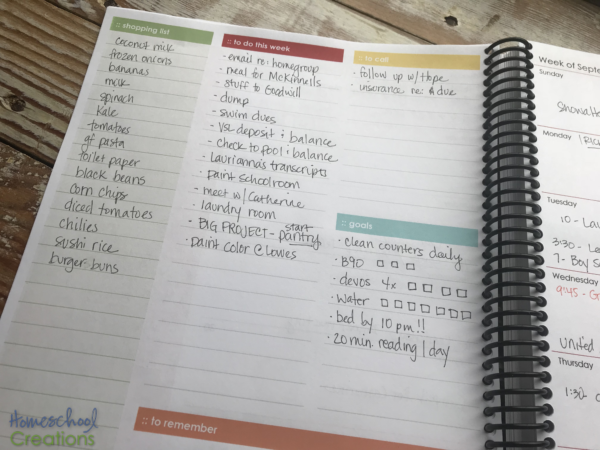 :: shopping list
coconut milk
frozen onions
bananas
milk
spinach
kale
tomatoes
gf pasta
toilet paper
black beans
corn chips
diced tomatoes
chilies
sushi rice
burger buns
:: to do this week
- email re: homegroup
- meal for McKinnells
- stuff to Goodwill
- dump
- swim dues
- VSL deposit & balance
- check to pool & balance
- Laurianna's transcripts
- paint schoolroom
- meet w/ Catherine
- laundry room
- BIG PROJECT - start pantry
- paint color @ Lowes
:: to call
- follow up w/ Hope
- insurance re: due
:: goals
· clean counters daily
· B90 □ □ □
· devos 4x □ □ □ □
· water □ □ □ □ □ □ □
· bed by 10 pm!!
· 20 min. reading / day
:: to remember
Week of Sept
Sunday
Showalte
Monday
Tuesday
10 - Lau
3:30 - Le
7 - Boy S
Wednesday
9:45 - G
United
Thursday
1:30 -
Homeschool
Creations